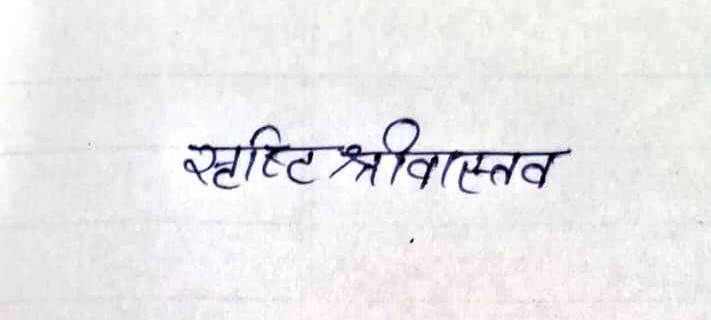 सृष्टि श्रीवास्तव